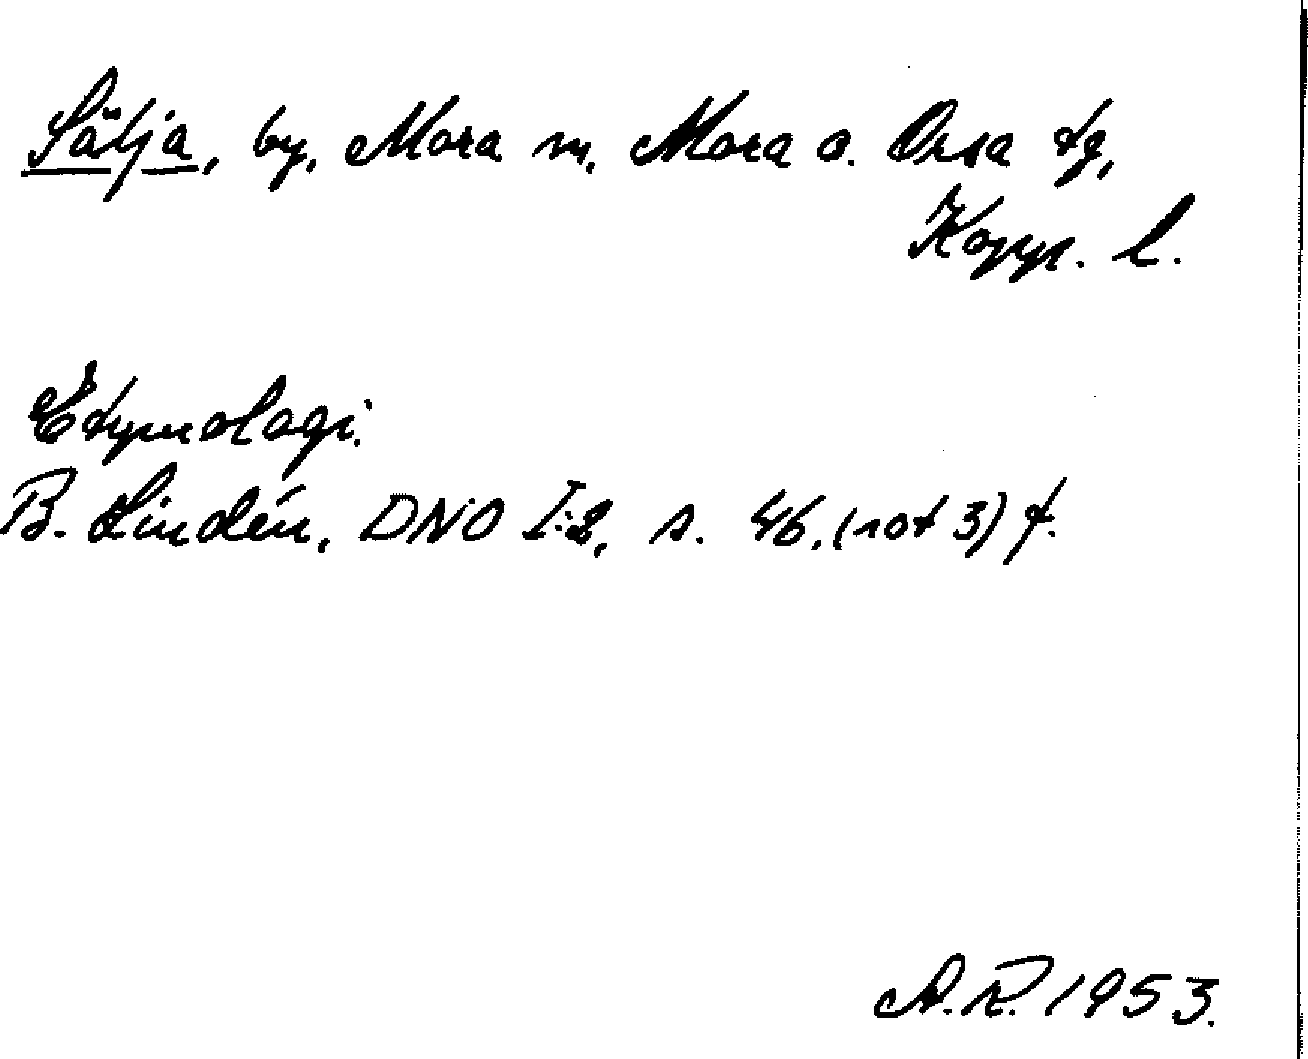 Sälja, by, Mora sn, Mora o. Orsa tg,
Kopp. l.
Etymologi:
B. Lindén, DNO I:2, s. 46, (not 3) f.
A.R. 1953.